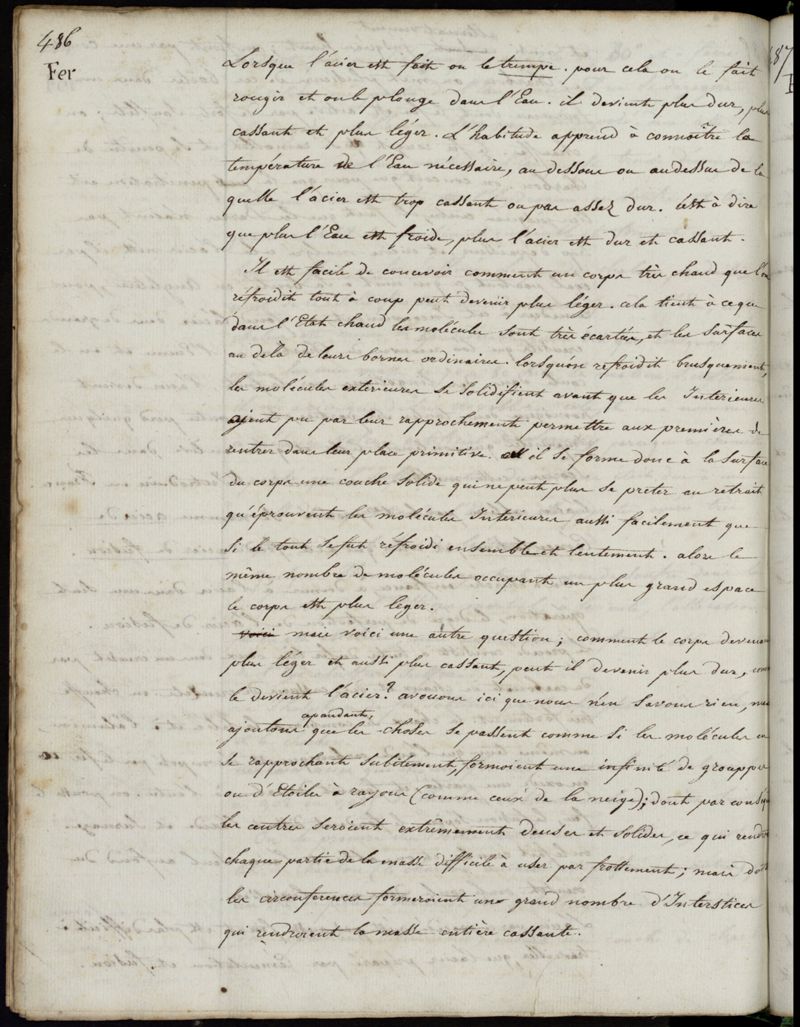 486
Fer
Lorsque l'acier est fait on le trempe. pour cela on le fait
rougir et on le plonge dans l'Eau. il devient plus dur, plus
cassant et plus léger. L'habitude apprend à connoître la
température de l'Eau nécessaire, au dessous ou au dessus de la
quelle l'acier est trop cassant ou pas assez dur. c'est à dire
que plus l'Eau est froide, plus l'acier est dur et cassant.
Il est facile de concevoir comment un corps très chaud que l'on
réfroidit tout à coup peut devenir plus léger. cela tient à ce que
dans l'Etat chaud les molécules sont très écartées, et les surfaces
au délà de leurs bornes ordinaires. lorsqu'on refroidit brusquement,
les molécules extérieures se solidifient avant que les Interieures
ayent pu par leur rapprochement permettre aux premières de
rentrer dans leur place primitive. il se forme donc à la surface
du corps une couche solide qui ne peut plus se preter au retrait
qu'éprouvent les molécules Interieures aussi facilement que
si le tout se fut réfroidi ensemble et lentement. alors le
même nombre de molécules occupant un plus grand espace
le corps est plus leger.
voici mais voici une autre question; comment le corps devenu
plus léger et aussi plus cassant, peut il devenir plus dur, comme
le devient l'acier? avouons ici que nous n'en savons rien, mais
ajoutons cependant, que les choses se passent comme si les molécules en
se rapprochant subitement, formoient une infinité de grouppes
ou d'Etoiles à rayons (comme ceux de la neige); dont par conséq
les centres seroient extrêmement denses et solides, ce qui rendroit
chaque partie de la masse difficile à user par frottement; mais dont
les circonférences formeroient un grand nombre d'Interstices
qui rendroient la masse entière cassante.